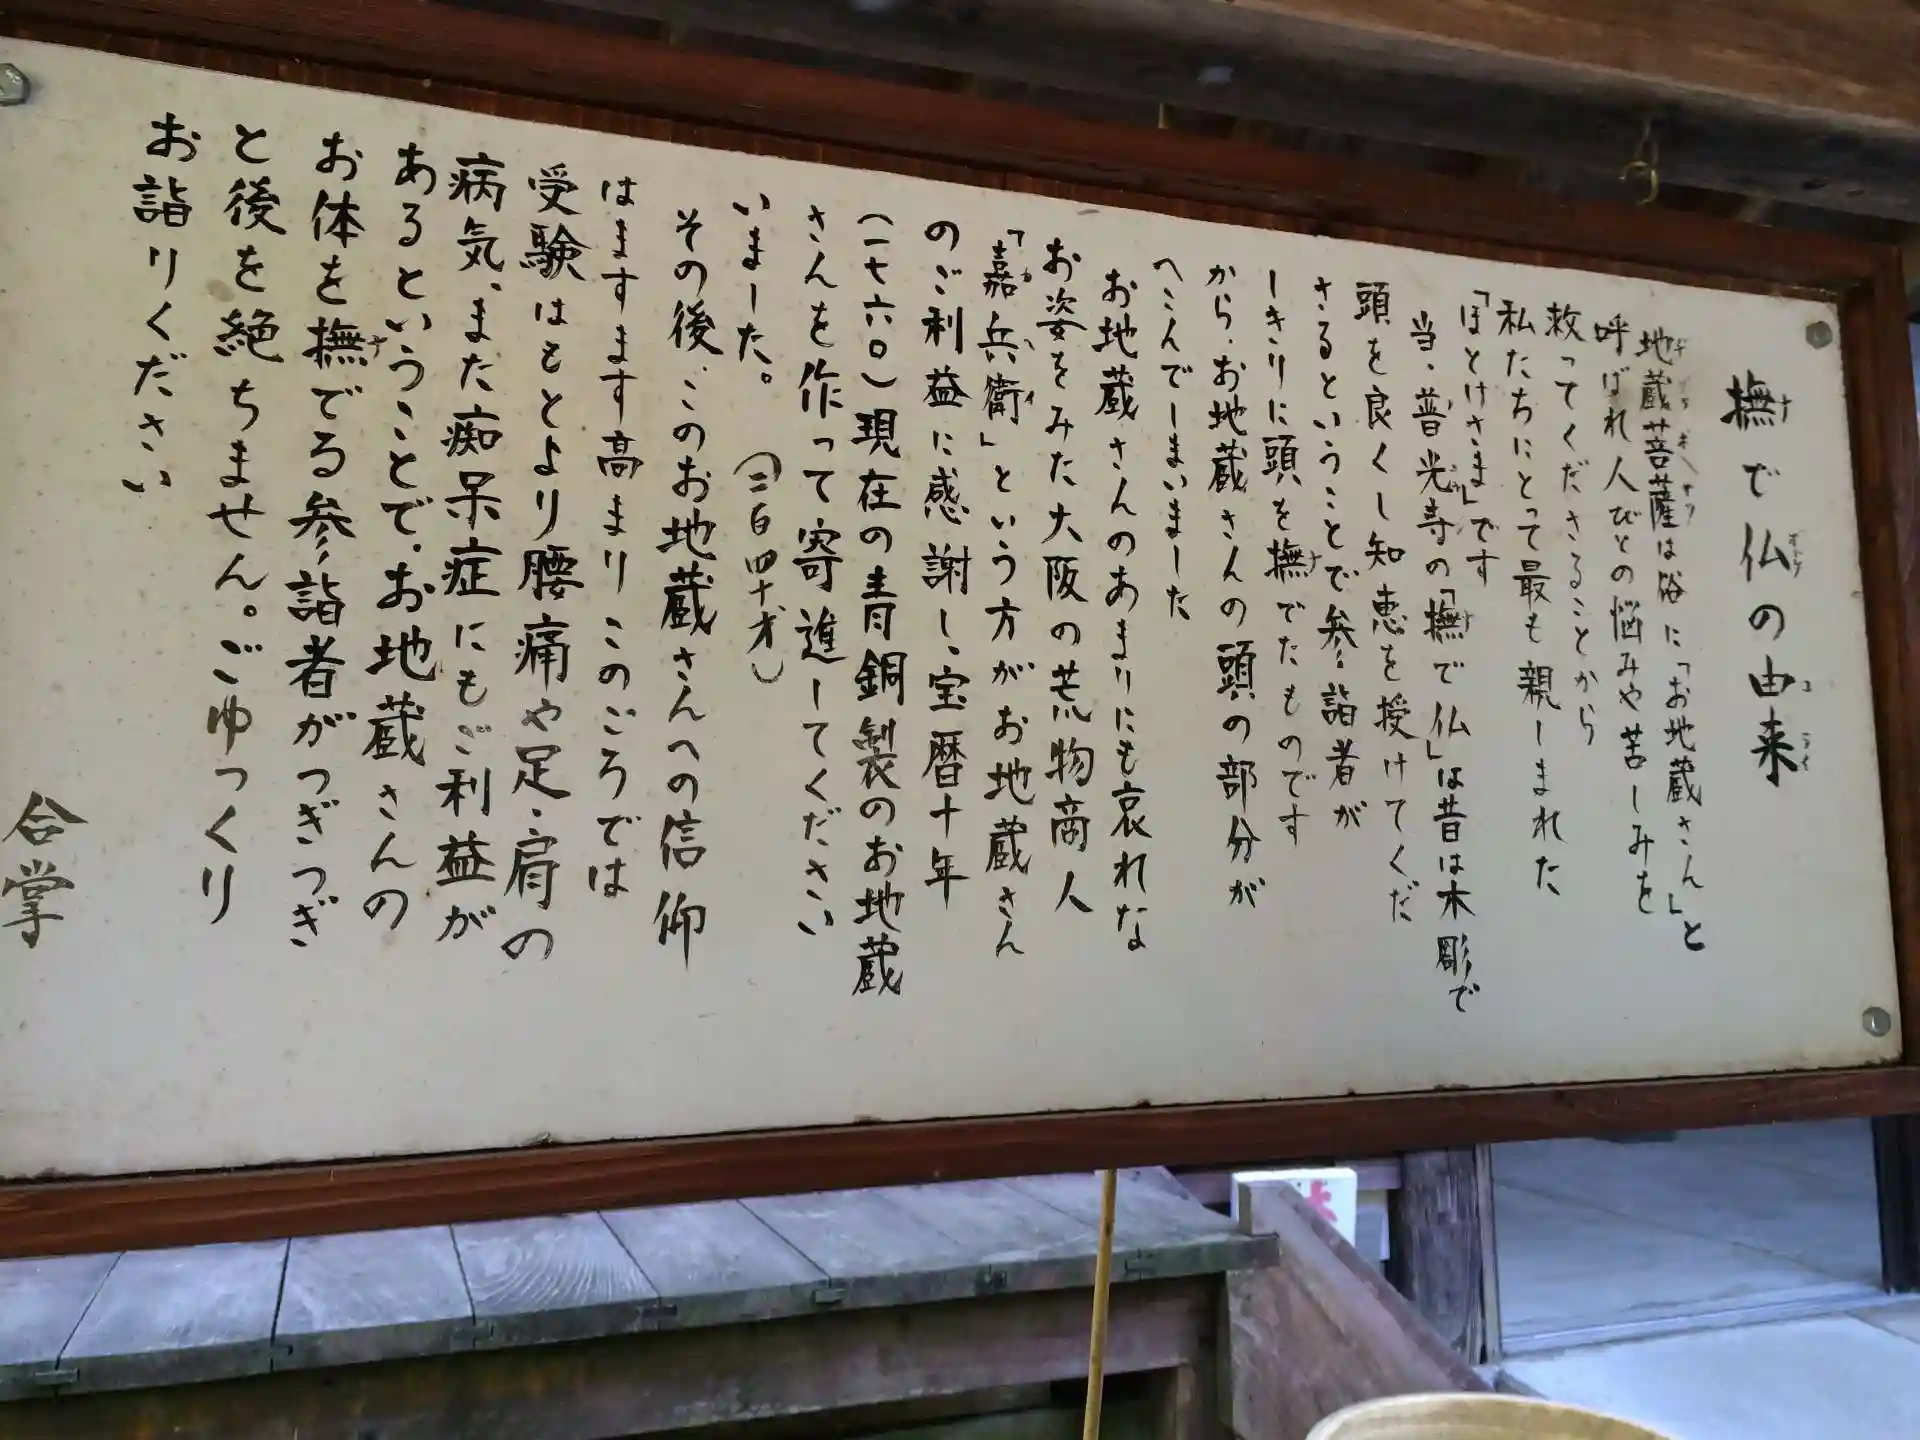 撫で仏の由来
地蔵菩薩は俗に「お地蔵さん」と
呼ばれ人びとの悩みや苦しみを
救ってくださることから
私たちにとって最も親しまれた
「ほとけさま」です
当、普光寺の「撫で仏」は昔は木彫で
頭を良くし知恵を授けてくだ
さるということで参詣者が
しきりに頭を撫でたものです
から、お地蔵さんの頭の部分が
へこんでしまいました
お地蔵さんのあまりにも哀れな
お姿をみた大阪の荒物商人
「嘉兵衛」という方がお地蔵さん
のご利益に感謝し、宝暦十年
(一七六〇)現在の青銅製のお地蔵
さんを作って寄進してください
いました。 (二百四十才)
その後、このお地蔵さんへの信仰
はますます高まりこのごろでは
受験はもとより腰痛や足・肩の
病気、また痴呆症にもご利益が
あるということで、お地蔵さんの
お体を撫でる参詣者がつぎつぎ
と後を絶ちません。ごゆっくり
お詣りください
合掌